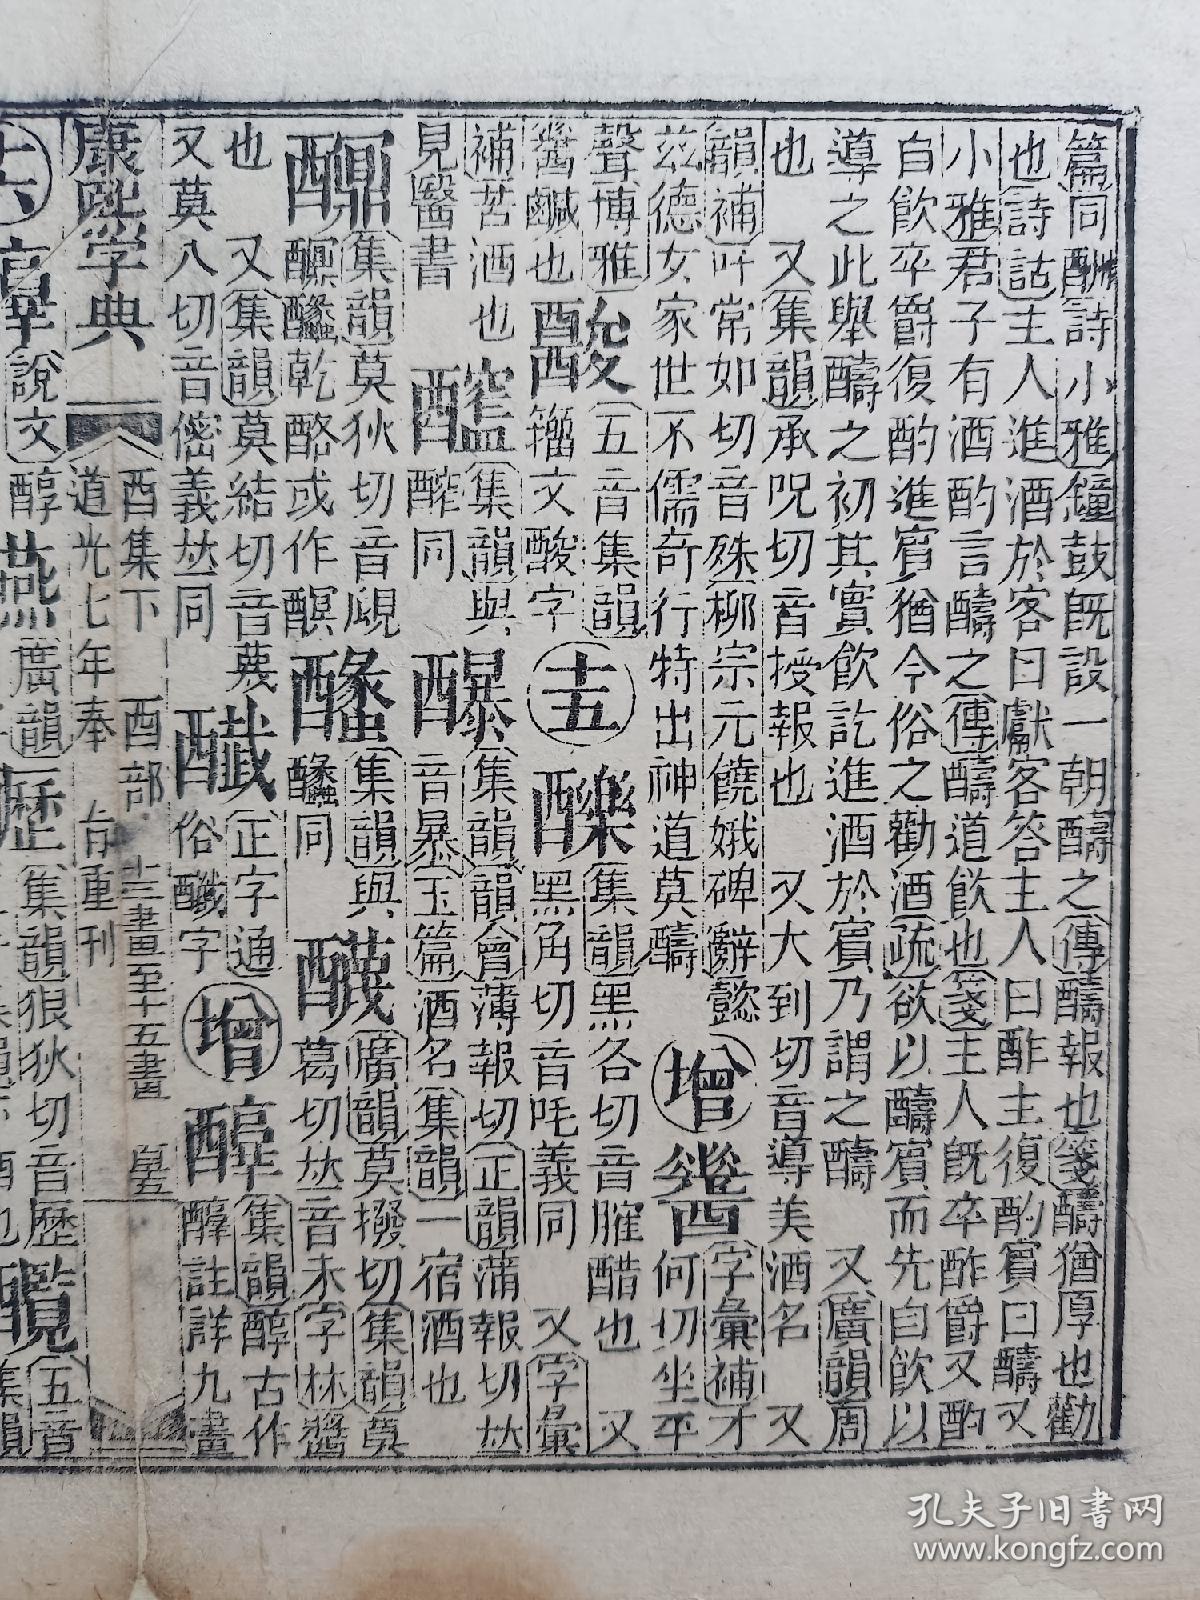 篇同酬詩小雅鐘鼓旣設一朝醻之傳醻報也箋醻猶厚也勸
也詩詁主人進酒於客曰獻客答主人曰酢主復酌賓曰醻又
小雅君子有酒酌言醻之傳醻道飮也箋主人旣卒酢爵又酌
自飮卒爵復酌進賓猶今俗之勸酒疏欲以醻賓而先自飮以
導之此舉醻之初其實飮訖進酒於賓乃謂之醻 又廣韻周
也 又集韻承呪切音授報也 又大到切音導美酒名 又
韻補叶常如切音殊柳宗元饒娥碑辭懿
茲德女家世不儒奇行特出神道莫醻
增
字彙補才
何切坐平
聲博雅
醬鹹也
五音集韻
籀文酸字
十五
醿
集韻黑各切音脽醋也 又
黑角切音吒義同 又字彙
補苦酒也
見醫書
集韻與
醡同
集韻韻會薄報切正韻蒲報切𠀤
音暴玉篇酒名集韻一宿酒也
集韻莫狄切音覛
醧醯乾酪或作
集韻與
同
廣韻莫撥切集韻莫
葛切𠀤音末字林醬
也 又集韻莫結切音蔑
又莫八切音傛義𠀤同
正字通
俗字
增
集韻醇古作
註詳九畫
康熙字典
酉集下 酉部 十三畫至十五畫
道光七年奉旨重刊
十六
說文
醇
醼
廣韻
集韻狼狄切音歷
五音
集韻
孔夫子旧书网
www.kongfz.com